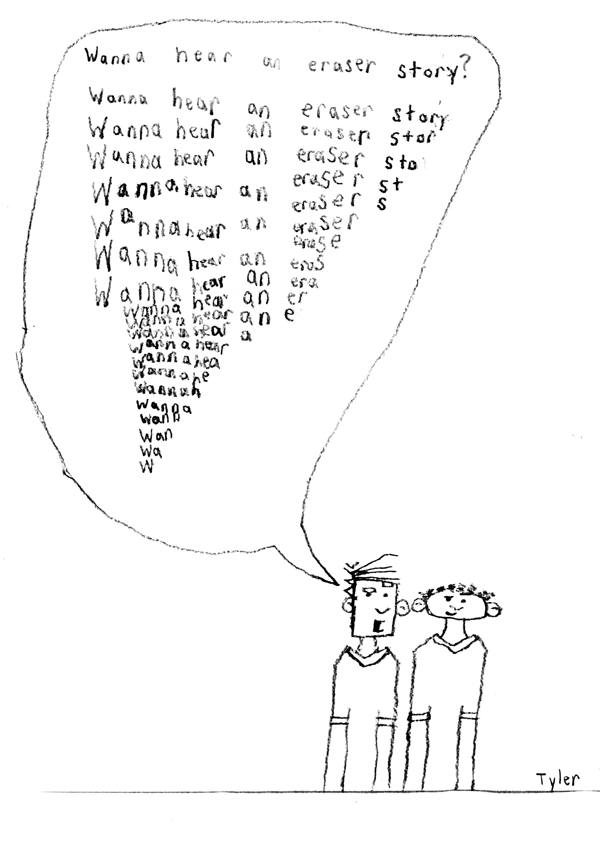 Wanna hear an eraser story?
Wanna hear an eraser story
Wanna hear an eraser stor
Wanna hear an eraser sto
Wanna hear an eraser st
eraser s
Wanna hear an eraser
erase
Wanna hear an eras
Wanna hear an era
Wanna hear an er
Wanna hear an e
Wanna hear a
Wanna hear
Wanna hea
Wanna he
Wanna h
Wanna
Wann
Wan
Wa
W
Tyler